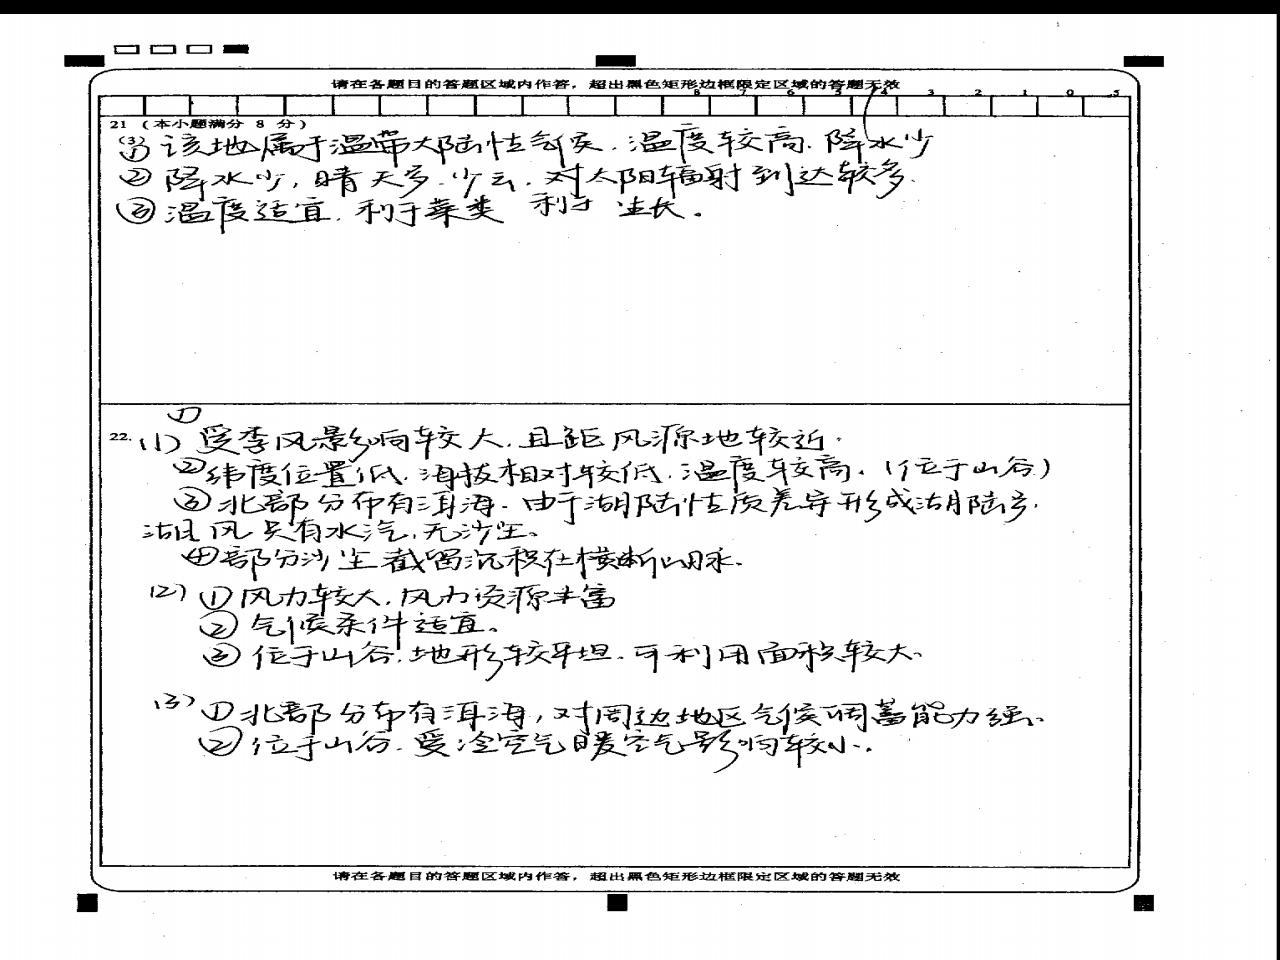 请在各题目的答题区域内作答，超出黑色矩形边框限定区域的答题无效
8 7 6 5 4 3 2 1 0 .5
21 (本小题满分 8 分)
(3)
① 该地属于温带大陆性气候.温度较高.降水少
② 降水少,晴天多.少云.对太阳辐射到达较多.
③ 温度适宜.利于菜类 利于 生长。
①
22. (1) 受季风影响较大.且距风源地较近.
②纬度位置低.海拔相对较低.温度较高.(位于山谷)
③北部分布有洱海.由于湖陆性质差异形成湖陆风.
湖风只有水汽,无沙尘。
④部分沙尘截留沉积在横断山脉.
(2) ①风力较大,风力资源丰富
②气候条件适宜。
③位于山谷.地形较平坦.可利用面积较大.
(3) ①北部分布有洱海,对周边地区气候调蓄能力强.
②位于山谷.受冷空气暖空气影响较小.
请在各题目的答题区域内作答，超出黑色矩形边框限定区域的答题无效